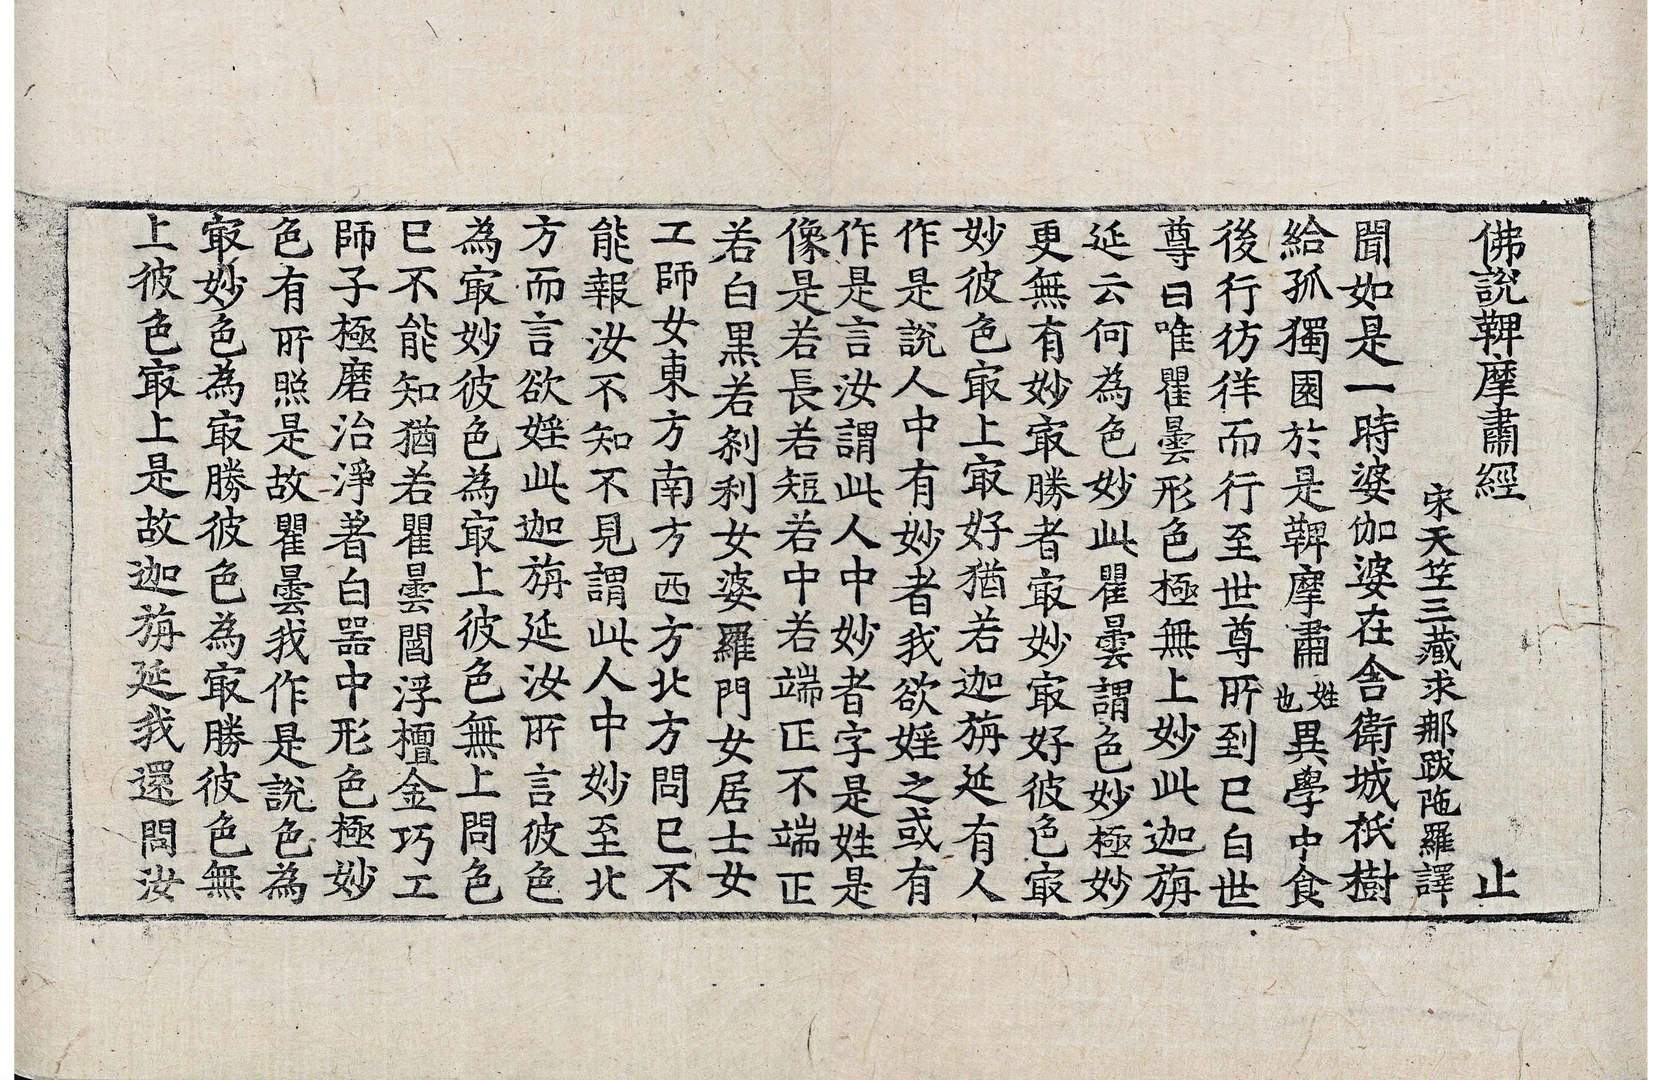 佛說鞞摩肅經 止
宋天竺三藏求那跋陁羅譯
聞如是一時婆伽婆在舍衛城祇樹
給孤獨園於是鞞摩肅姓也異學中食
後行彷徉而行行至世尊所到已白世
尊曰唯瞿曇形色極無上妙此迦旃
延云何為色妙此瞿曇謂色妙極妙
更無有妙㝡勝者㝡妙㝡好彼色㝡
妙彼色㝡上㝡好猶若迦旃延有人
作是說人中有妙者我欲婬之或有
作是言汝謂此人中妙者字是姓是
像是若長若短若中若端正不端正
若白黒若剎利女婆羅門女居士女
工師女東方南方西方北方問已不
能報汝不知不見謂此人中妙至北
方而言欲婬此迦旃延汝所言彼色
為㝡妙彼色為㝡上彼色無上問色
已不能知猶若瞿曇閻浮檀金巧工
師子極磨治淨著白器中形色極妙
色有所照是故瞿曇我作是說色為
㝡妙色為㝡勝彼色為㝡勝彼色無
上彼色㝡上是故迦旃延我還問汝